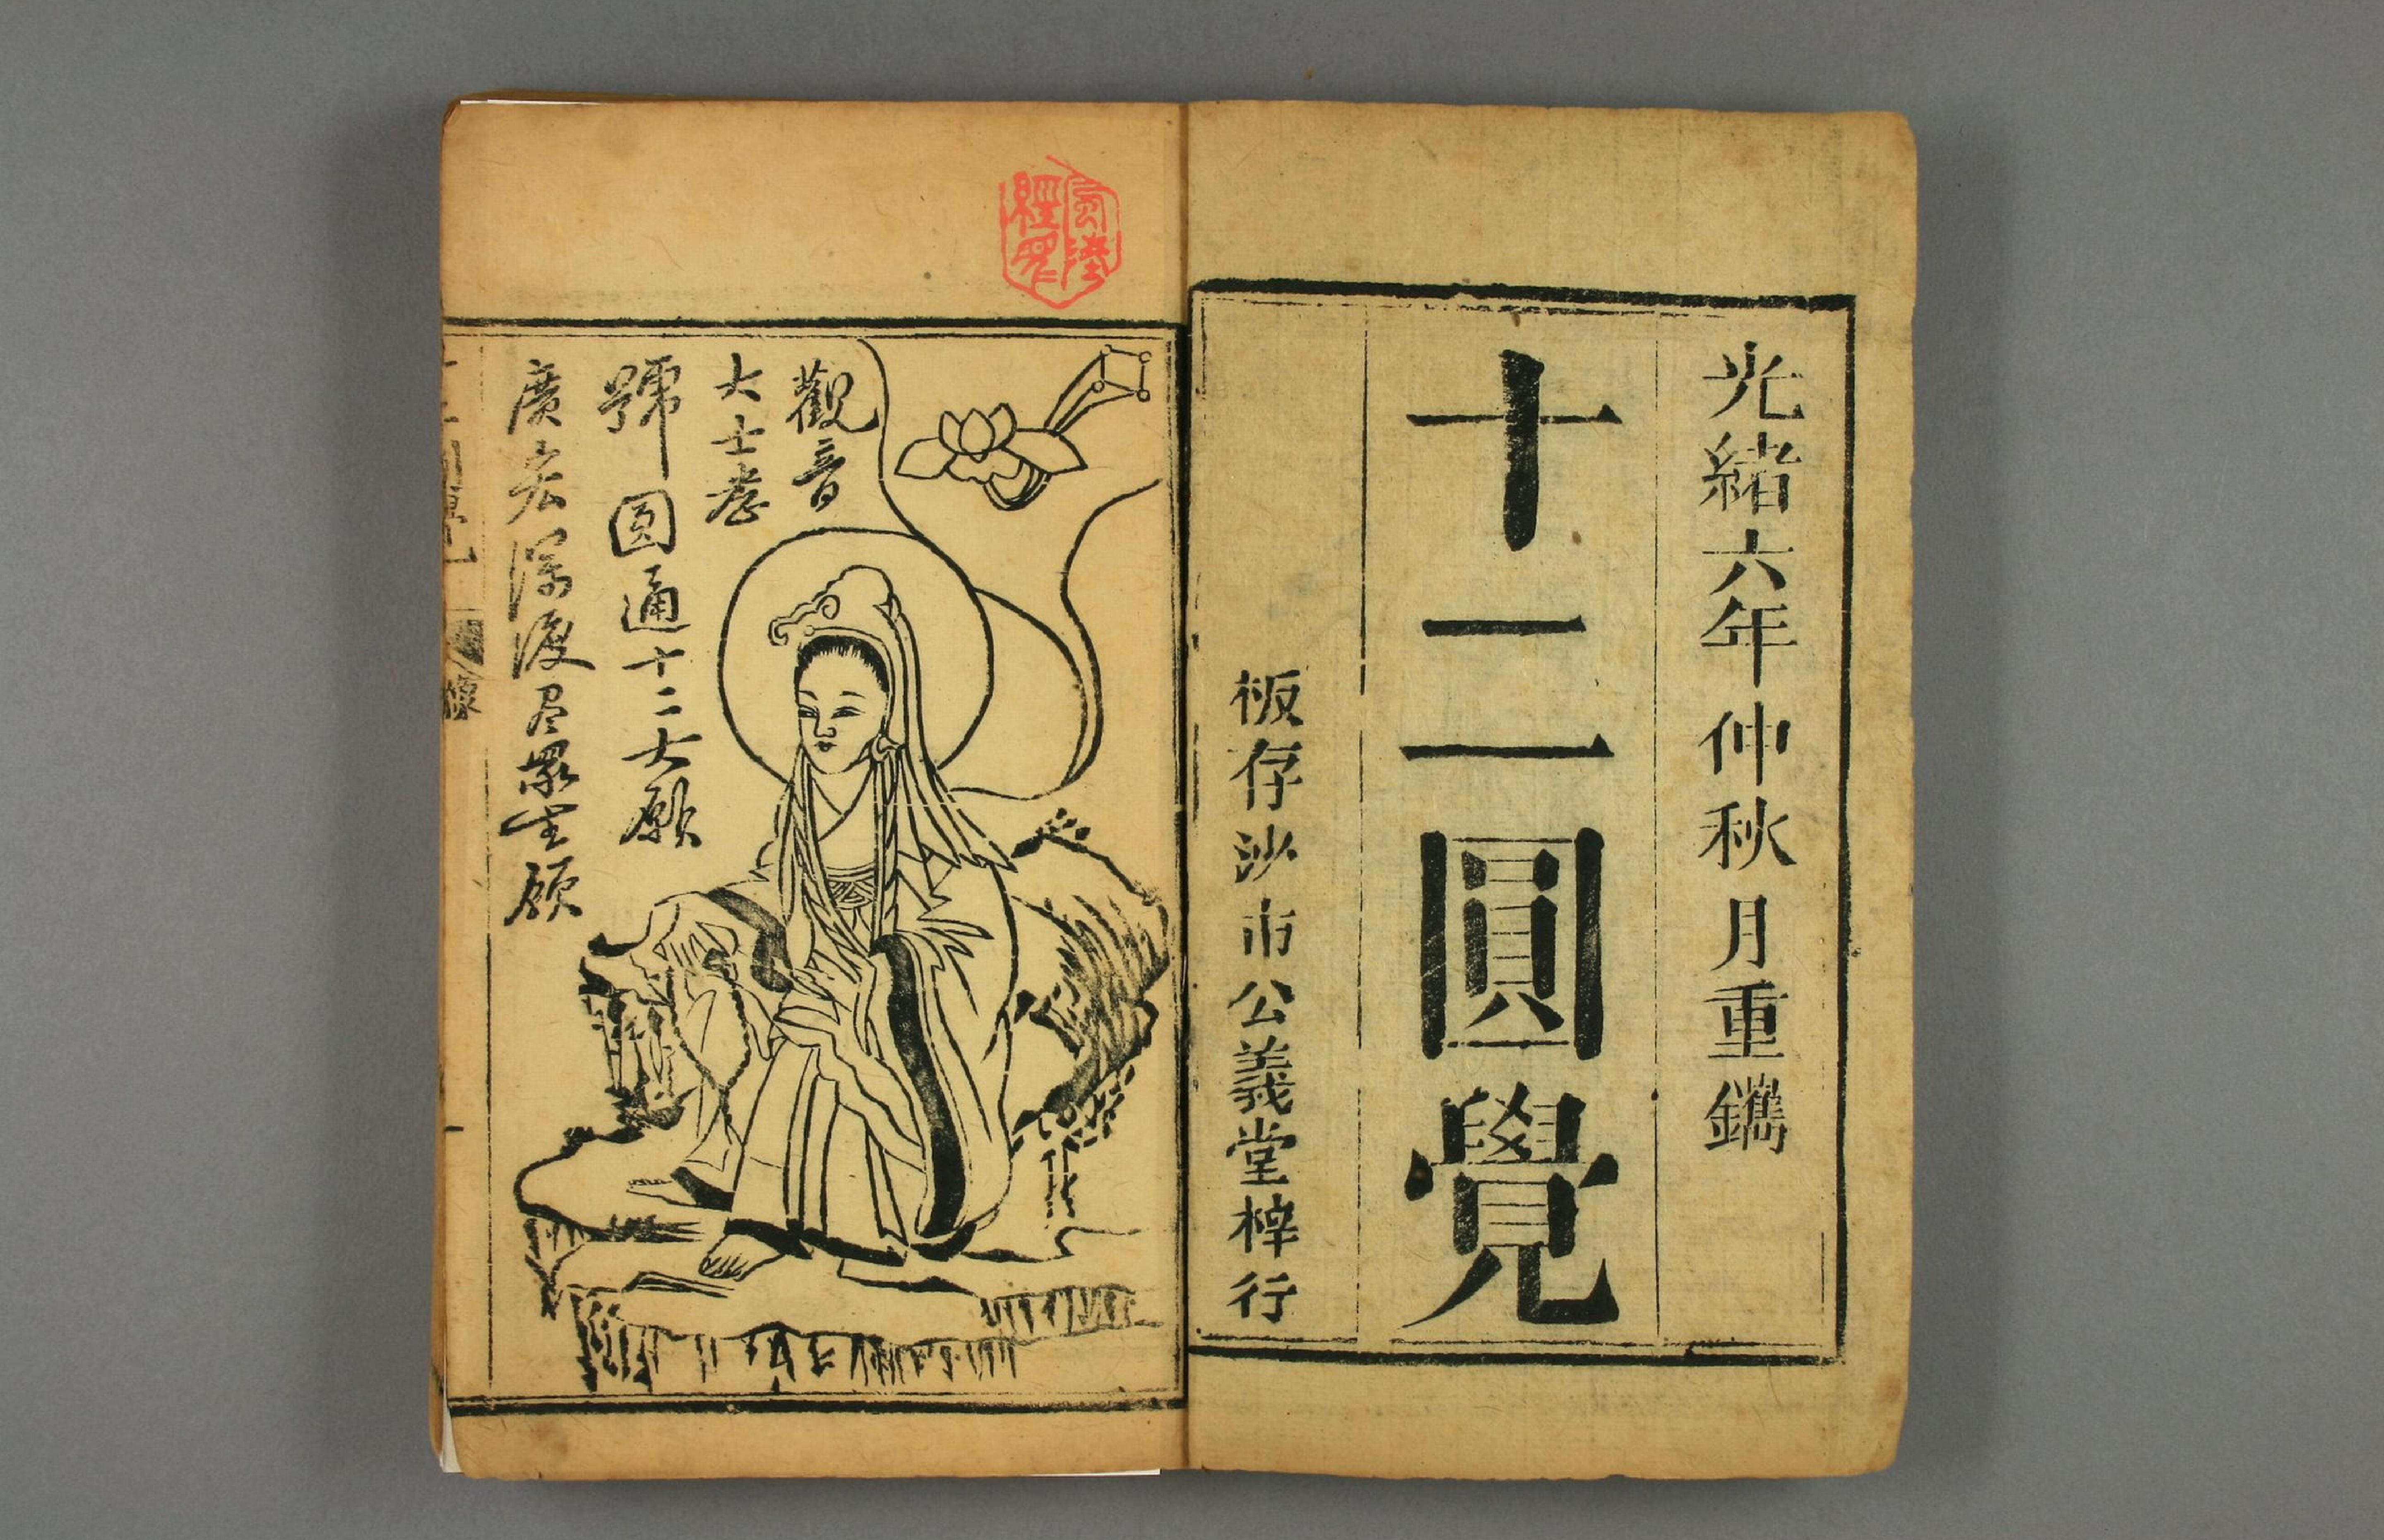 光緒六年仲秋月重鐫
十二圓覺
板存沙市公義堂梓行
觀音
大士悉
號圓通十二大願
廣宏深渡尽眾生願